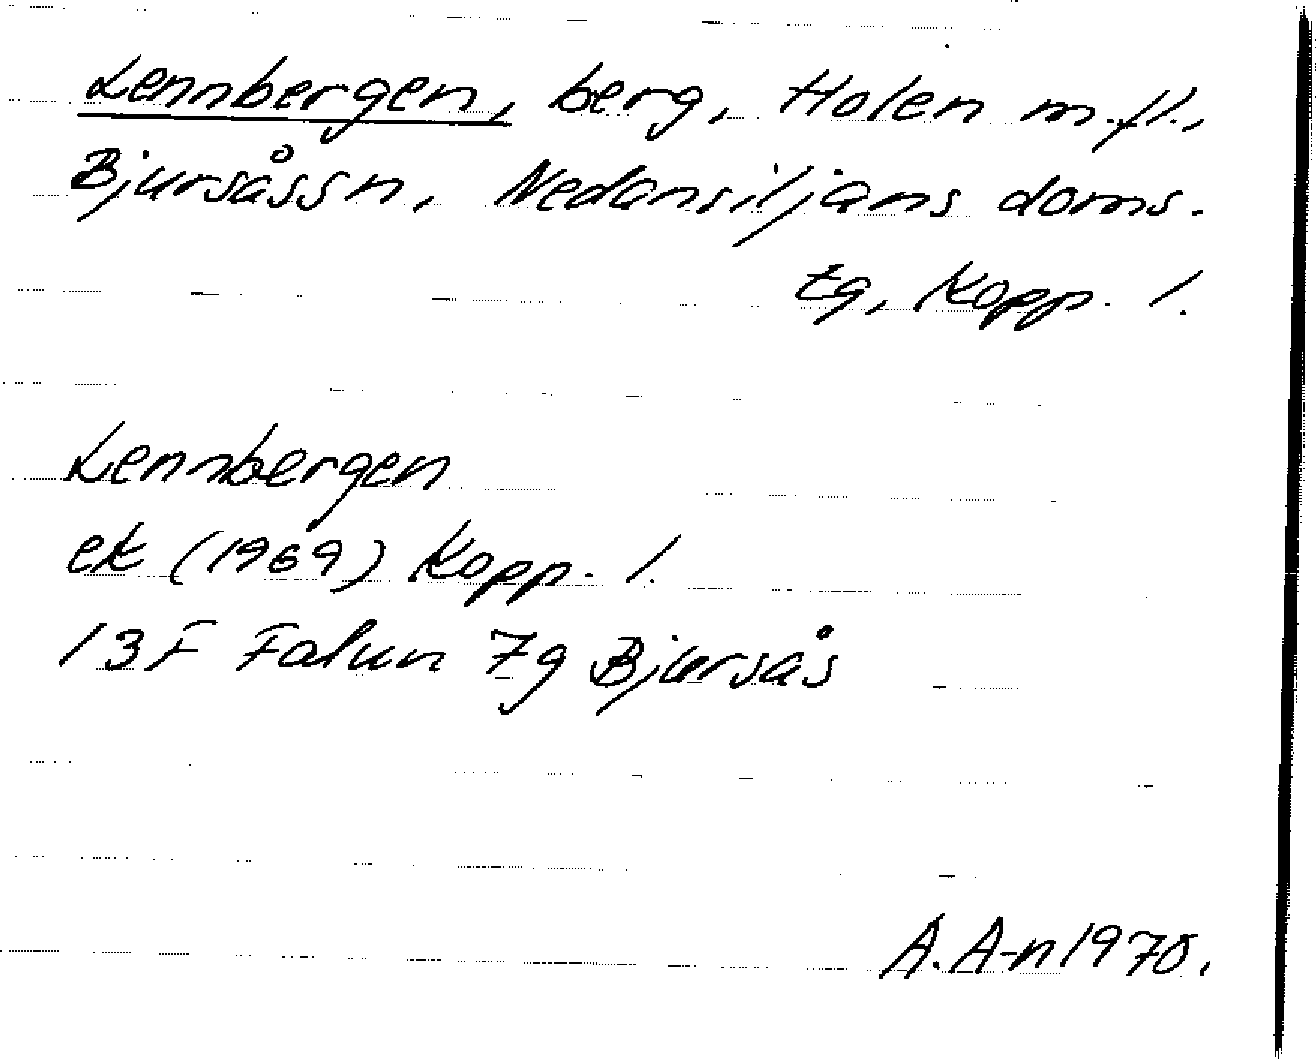 Lennbergen, berg, Holen m.fl.,
Bjursåssn, Nedansiljans doms.
tg, Kopp. l.
Lennbergen
ek (1969) Kopp. l.
13F Falun 7g Bjursås
A. A-n 1970.